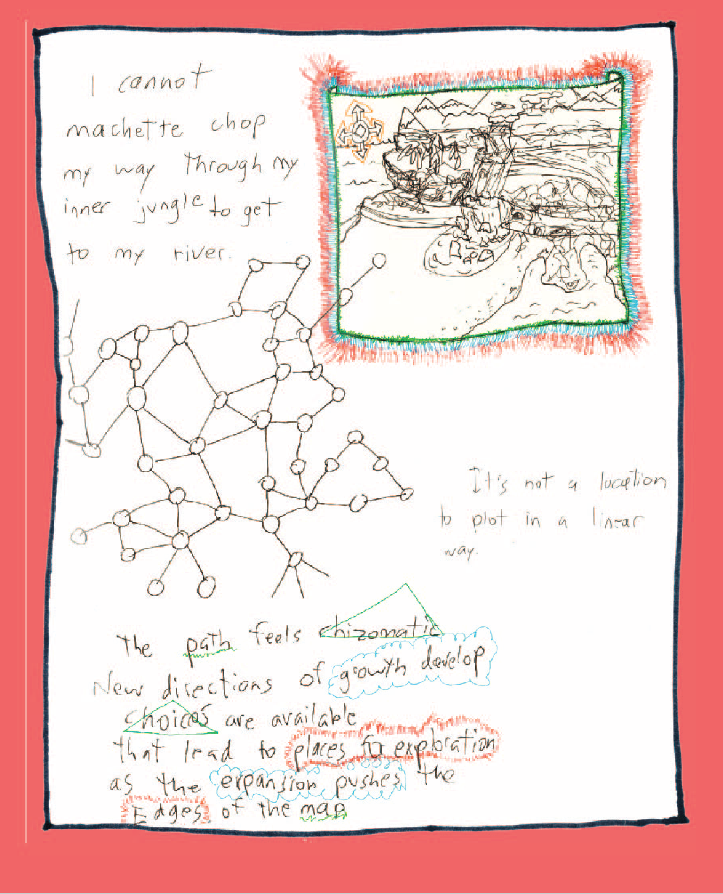 I cannot
machette chop
my way through my
inner jungle to get
to my river.
It's not a location
to plot in a linear
way.
The path feels rhizomatic
New directions of growth develop
choices are available
that lead to places for exploration
as the expansion pushes the
Edges of the map